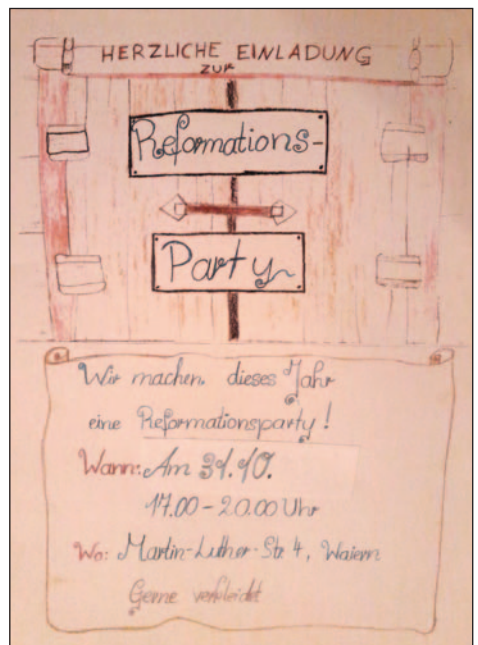 HERZLICHE EINLADUNG
ZUR
Reformations-
Party
Wir machen dieses Jahr
eine Reformationsparty!
Wann: Am 31.10.
17.00-20.00 Uhr
Wo: Martin-Luther-Str 4, Waiern
Gerne verkleidet